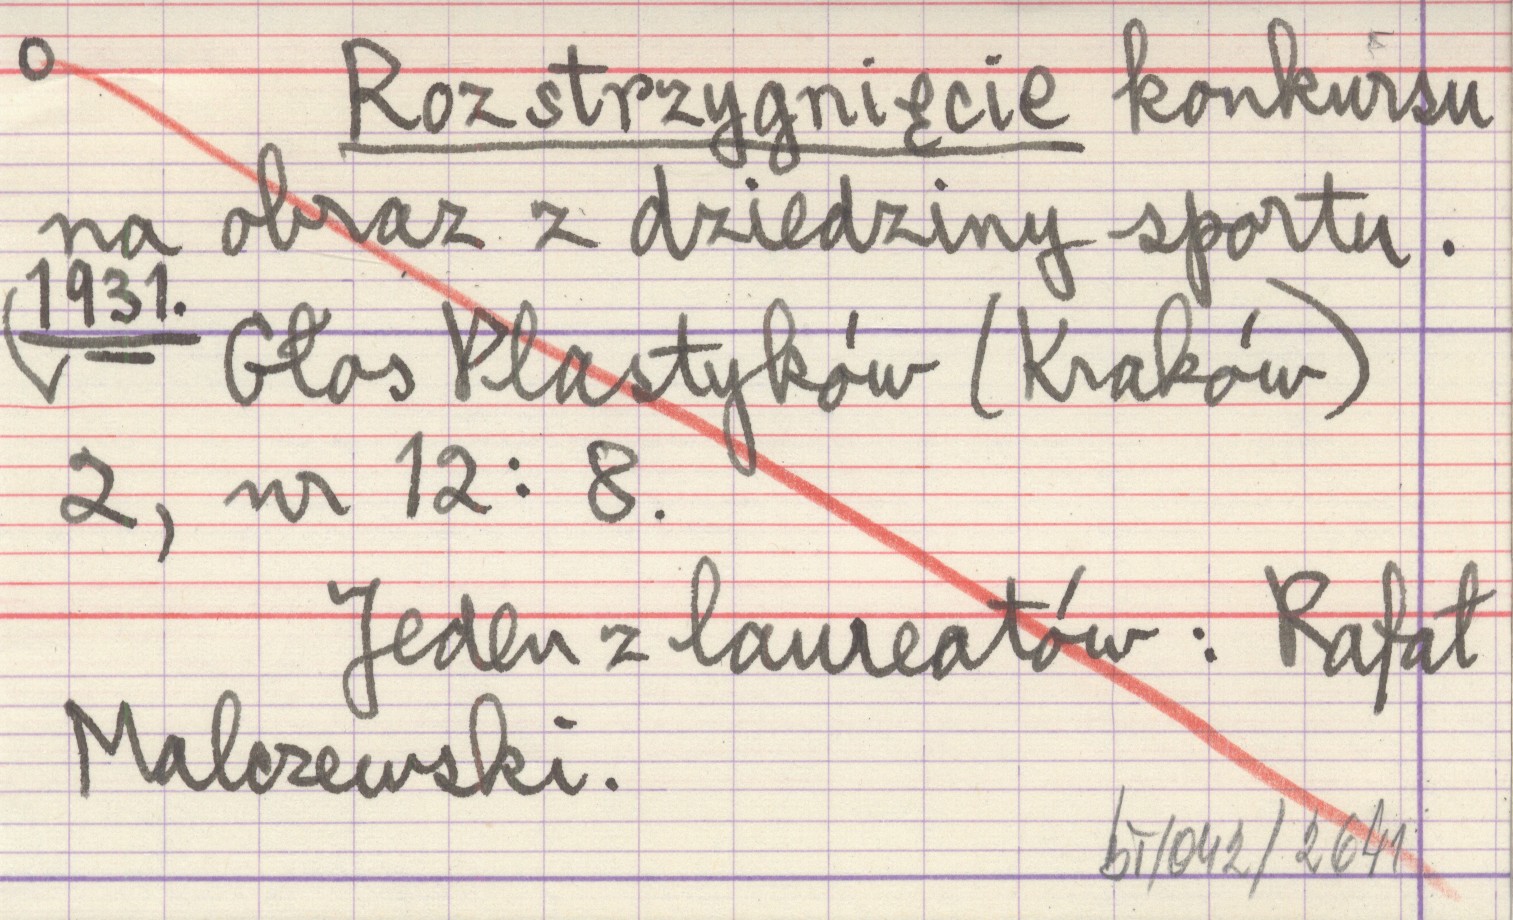 O Rozstrzygnięcie konkursu
na obraz z dziedziny sportu.
1931. Głos Plastyków (Kraków)
2, nr 12: 8.
Jeden z laureatów: Rafał
Malczewski.
bT/042/2641